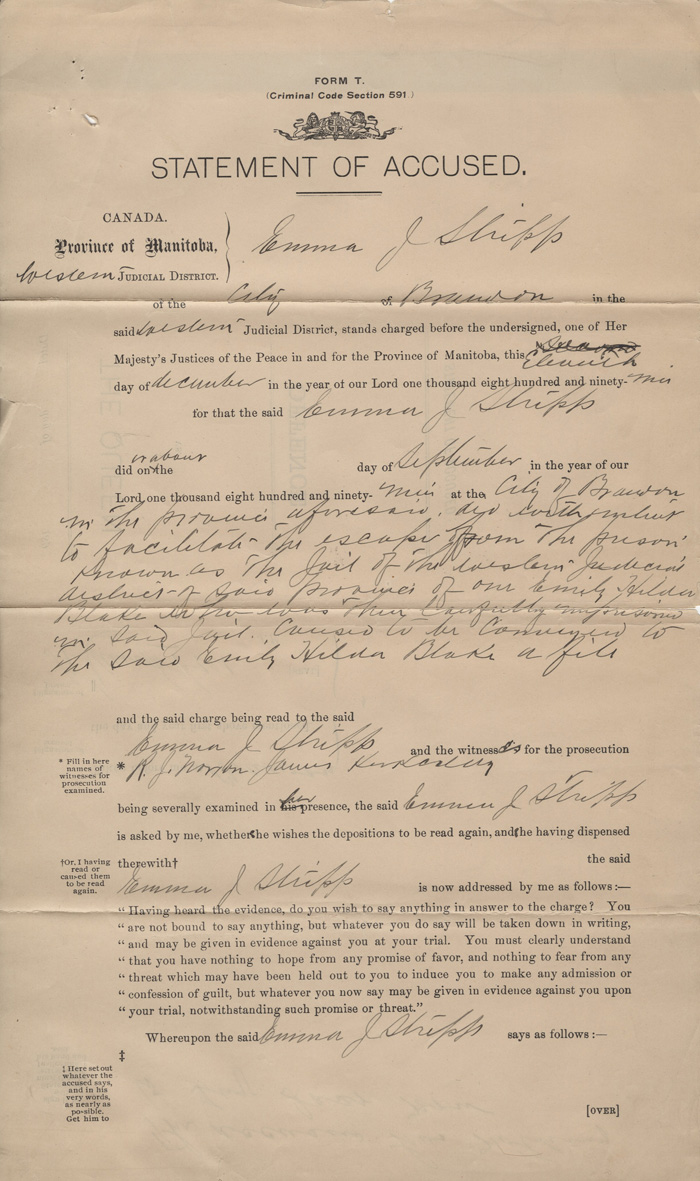 FORM T.
(Criminal Code Section 591)
STATEMENT OF ACCUSED.
CANADA.
Province of Manitoba,
Western JUDICIAL DISTRICT.
Emma J Stripp
of the City of Brandon in the
said Western Judicial District, stands charged before the undersigned, one of Her
Majesty's Justices of the Peace in and for the Province of Manitoba, this Eleventh
day of december in the year of our Lord one thousand eight hundred and ninety-nine
for that the said Emma J Stripp
or about
did on the day of September in the year of our
Lord one thousand eight hundred and ninety-nine at the City of Brandon
in the province aforesaid, did with intent
to facilitate the escape from the prison
known as the Jail of the Western Judicial
district of said Province of one Emily Hilda
Blake who was then lawfully imprisoned
in said Jail. Caused to be Conveyed to
the said Emily Hilda Blake a file
and the said charge being read to the said
Emma J Stripp and the witnesses for the prosecution
* Fill in here
names of
witnesses for
prosecution
examined.
* R. J. James Kirkcaldy
being severally examined in her presence, the said Emma J Stripp
is asked by me, whether she wishes the depositions to be read again, and she having dispensed
†Or, I having
read or
caused them
to be read
again.
therewith† the said
Emma J Stripp is now addressed by me as follows:—
"Having heard the evidence, do you wish to say anything in answer to the charge? You
"are not bound to say anything, but whatever you do say will be taken down in writing,
"and may be given in evidence against you at your trial. You must clearly understand
"that you have nothing to hope from any promise of favor, and nothing to fear from any
"threat which may have been held out to you to induce you to make any admission or
"confession of guilt, but whatever you now say may be given in evidence against you upon
"your trial, notwithstanding such promise or threat."
Whereupon the said Emma J Stripp says as follows:—
‡
‡ Here set out
whatever the
accused says,
and in his
very words,
as nearly as
possible.
Get him to
[OVER]